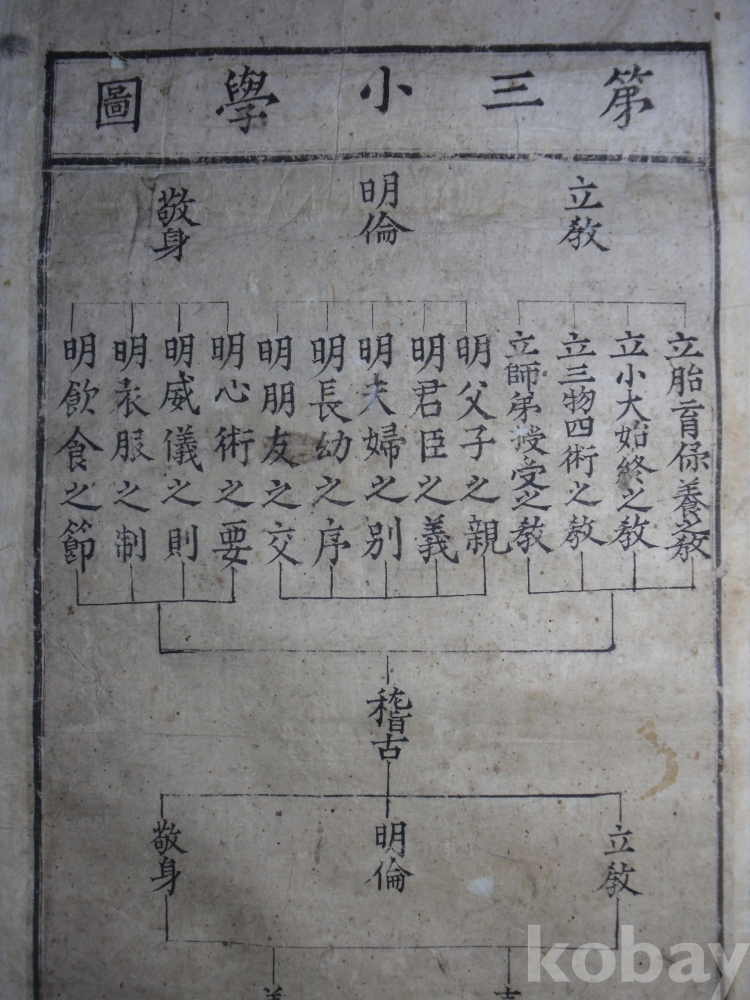 第三小學圖
立教
明倫
敬身
立胎育保養之教
立小大始終之教
立三物四術之教
立師弟授受之教
明父子之親
明君臣之義
明夫婦之別
明長幼之序
明朋友之交
明心術之要
明威儀之則
明衣服之制
明飮食之節
稽古
立教
明倫
敬身
kobay